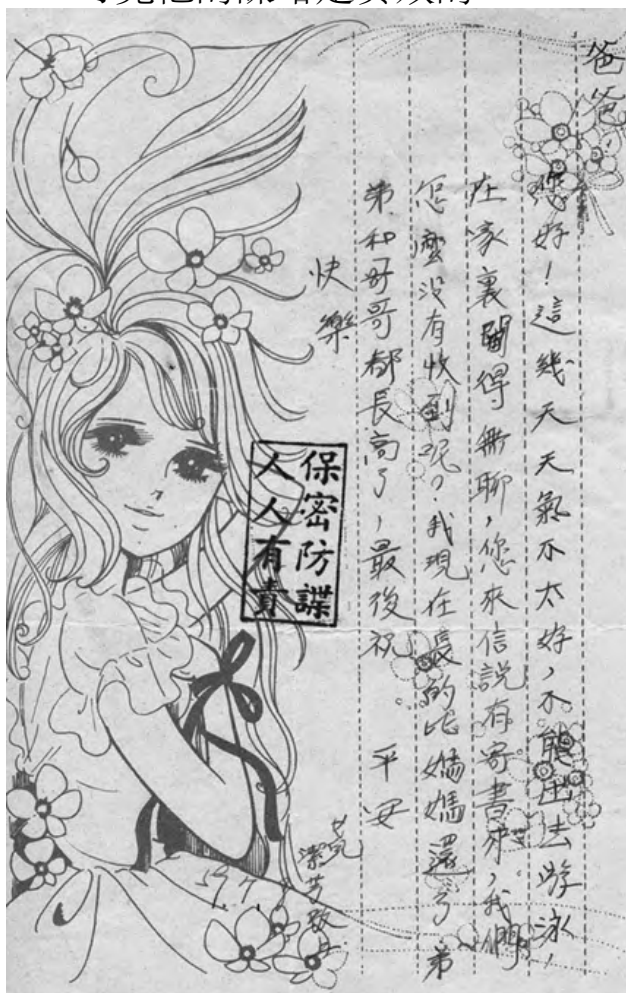 爸爸
您好！這幾天天氣不太好，不能出去游泳，
在家裏悶得無聊，您來信說有寄書來，我們
怎麼沒有收到呢？我現在長的比媽媽還了弟
弟和哥哥都長高了，最後祝 平安
快樂
潔芳敬上
保密防諜
人人有責